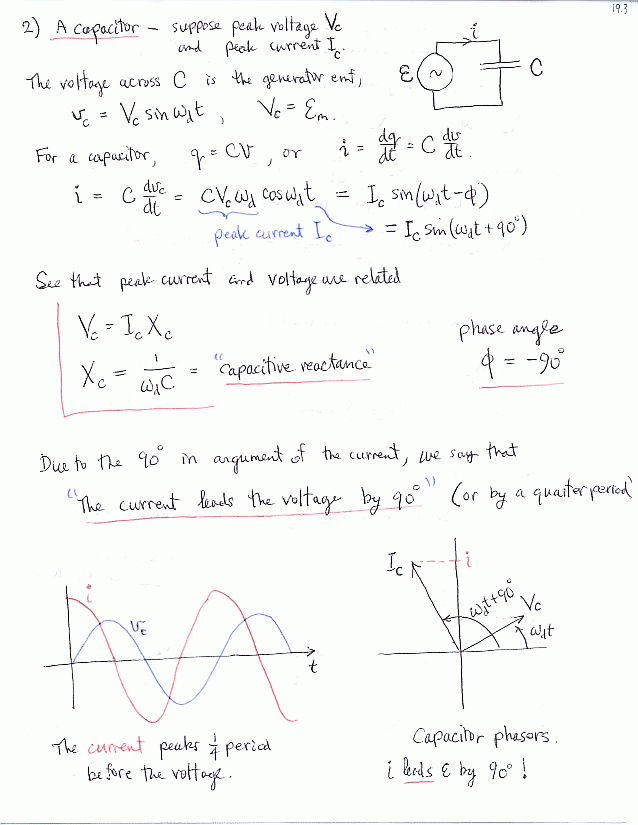 19.3
2) A capacitor – suppose peak voltage V_c
and peak current I_c.
i
ε ~ C
The voltage across C is the generator emf,
v_c = V_c sin ω_d t , V_c = ε_m.
For a capacitor, q = CV , or i = dq/dt = C dv/dt.
i = C dv_c/dt = CV_c ω_d cos ω_d t = I_c sin(ω_d t - ϕ)
peak current I_c → = I_c sin(ω_d t + 90°)
See that peak current and voltage are related
V_c = I_c X_c
phase angle
X_c = 1/ω_d C = "capacitive reactance"
ϕ = -90°
Due to the 90° in argument of the current, we say that
"The current leads the voltage by 90°" (or by a quarter period)
i
v_c
t
I_c
i
ω_d t + 90°
V_c
ω_d t
The current peaks 1/4 period
before the voltage.
Capacitor phasors.
i leads ε by 90° !